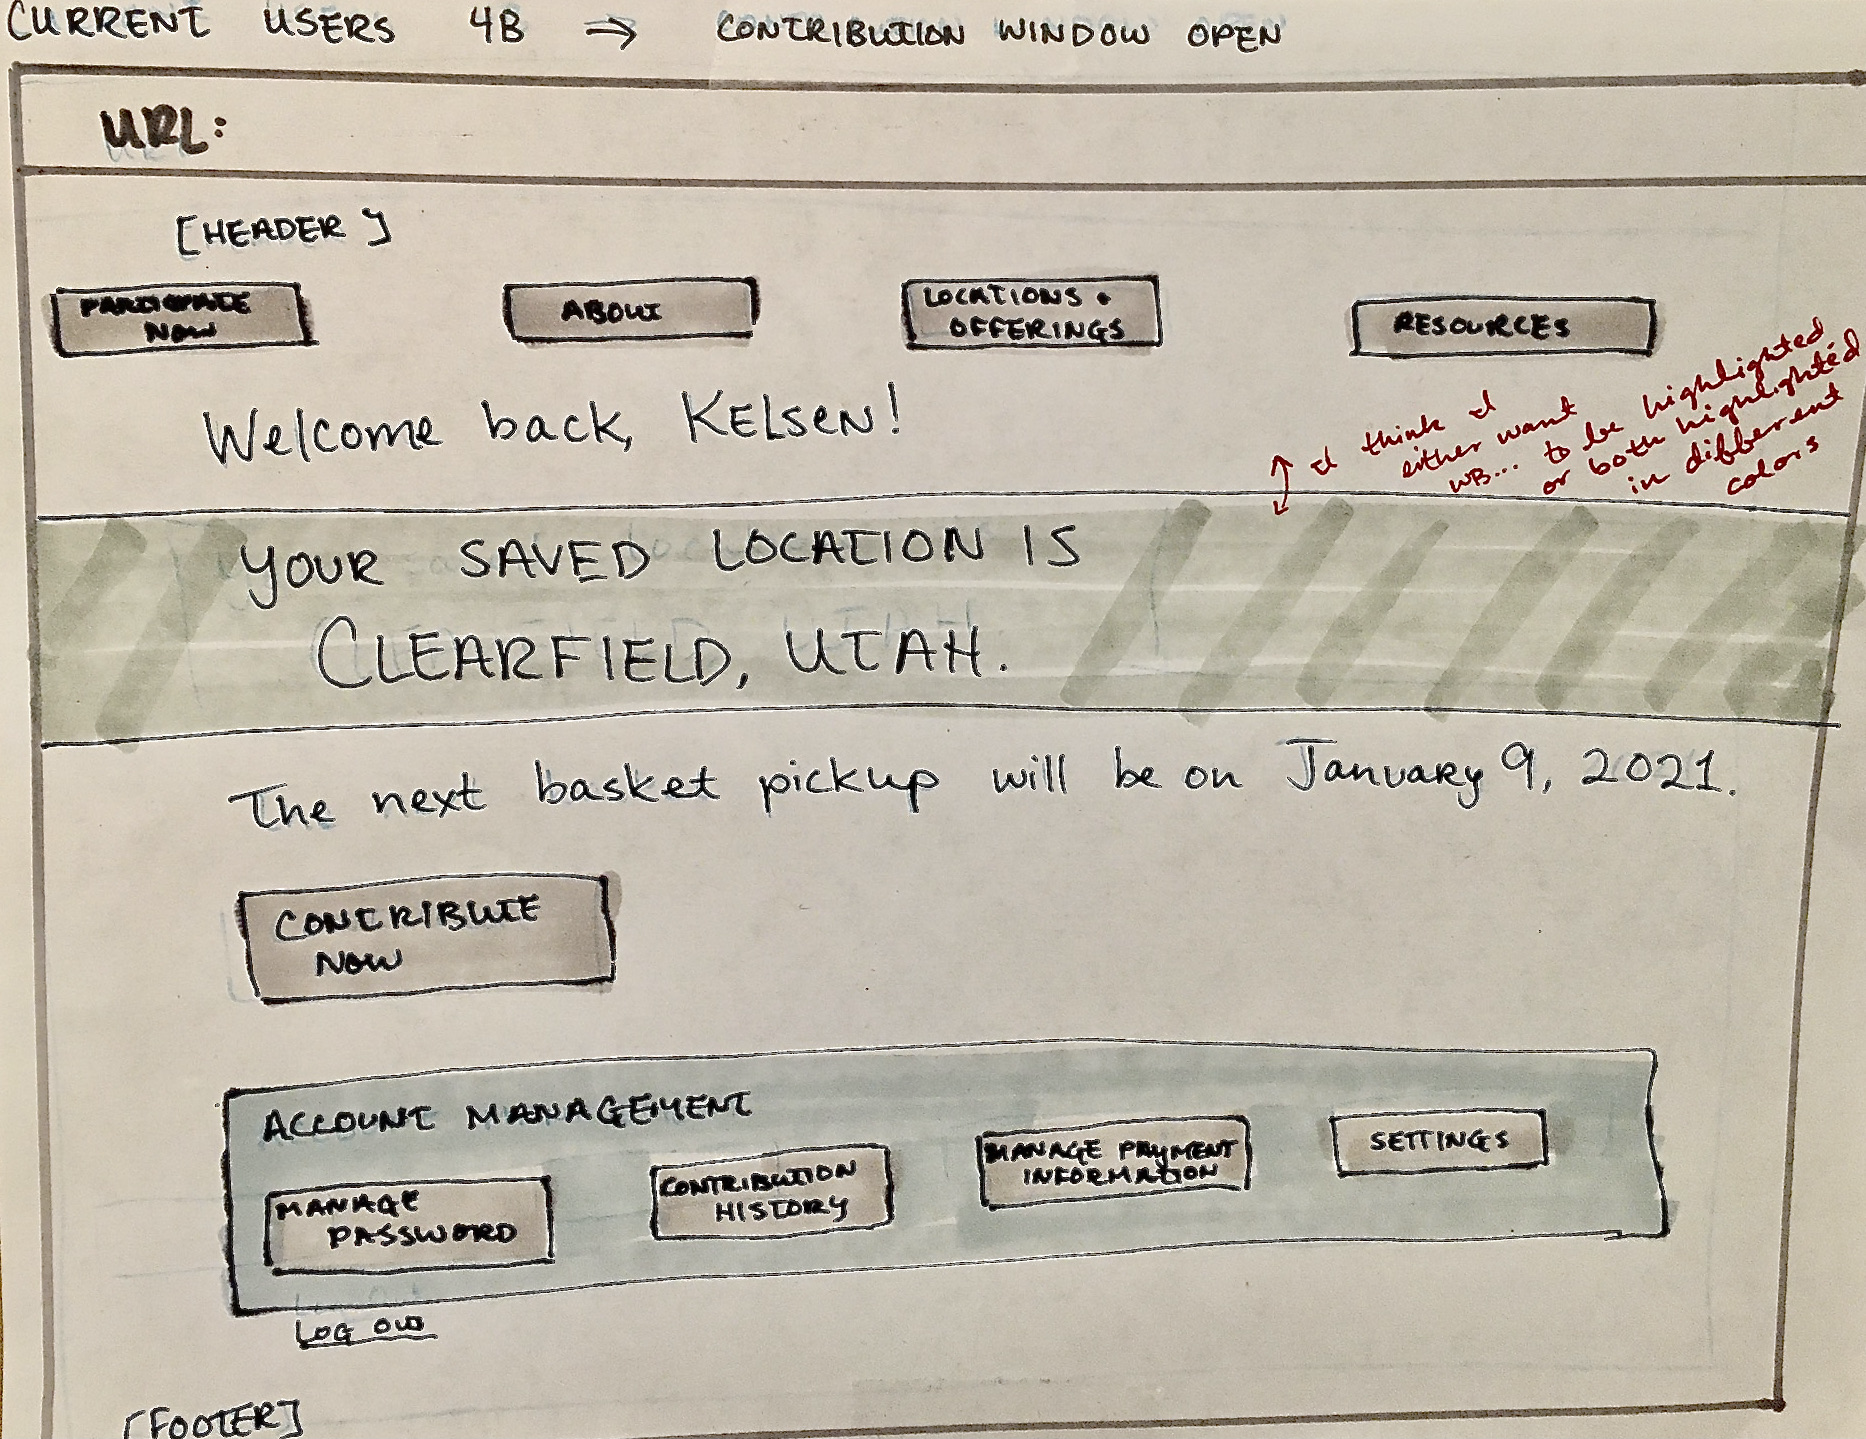 CURRENT USERS 4B ⇒ CONTRIBUTION WINDOW OPEN
URL:
[HEADER]
PARTICIPATE
NOW
ABOUT
LOCATIONS +
OFFERINGS
RESOURCES
Welcome back, KELSEN!
I think I
either want
WB... to be highlighted
or both highlighted
in different
colors
YOUR SAVED LOCATION IS
CLEARFIELD, UTAH.
The next basket pickup will be on January 9, 2021.
CONTRIBUTE
NOW
ACCOUNT MANAGEMENT
MANAGE
PASSWORD
CONTRIBUTION
HISTORY
MANAGE PAYMENT
INFORMATION
SETTINGS
LOG OUT
[FOOTER]